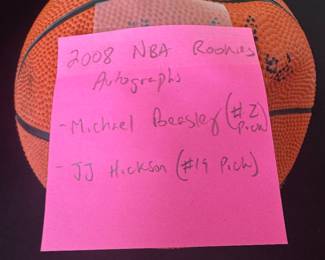 2008 NBA Rookies
Autographs
- Michael Beasley (#2 Pick)
- JJ Hickson (#19 Pick)